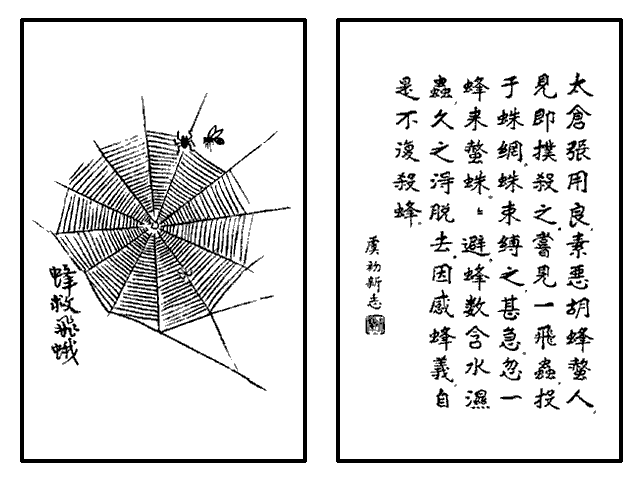 太倉張用良,素惡胡蜂螫人,
見即撲殺之。嘗見一飛蟲,投
于蛛網。蛛束縛之甚急。忽一
蜂来螫蛛。〻避。蜂數含水濕
蟲,久之得脱去。因感蜂義,自
是不復殺蜂。
虞初新志
蜂救飛蛾